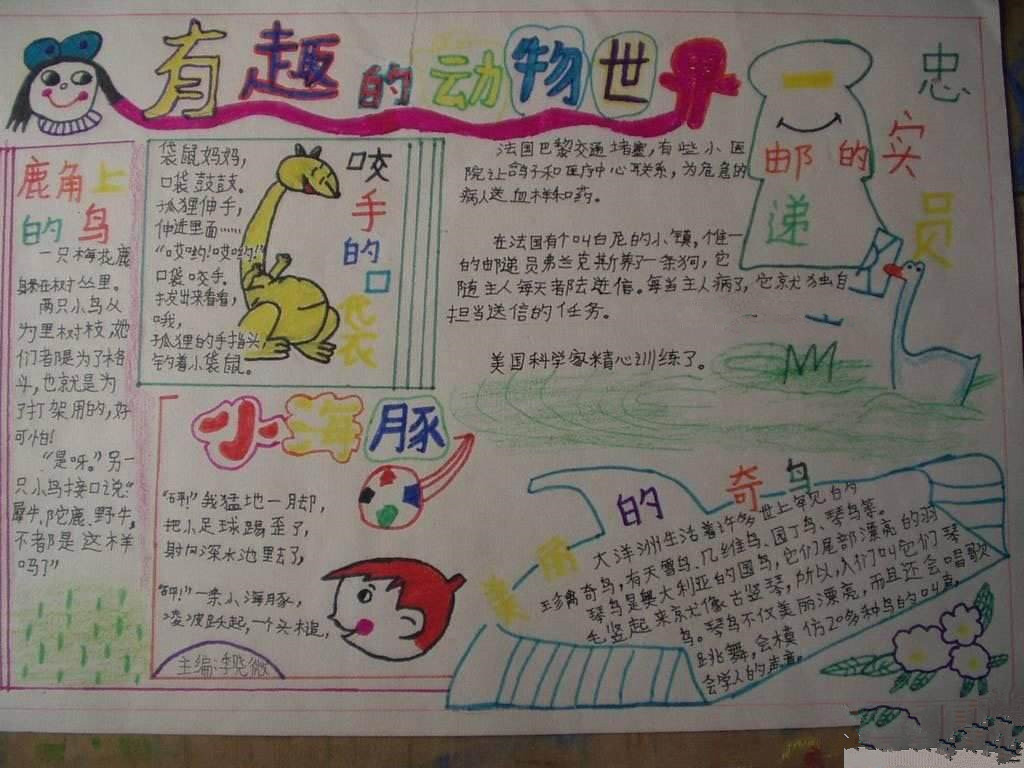 有趣的动物世界
鹿角上
的鸟
一只梅花鹿
躲在树丛里。
两只小鸟认
为里树枝,她
们都是为了格
斗,也就是为
了打架用的,好
可怕!
“是呀。”另一
只小鸟接口说:“
犀牛、驼鹿、野牛,
不都是这样
吗?”
咬手的口袋
袋鼠妈妈,
口袋鼓鼓。
狐狸伸手,
伸进里面……
“哎哟!哎哟!”
口袋咬手。
拔出来看看,
哦,
狐狸的手指头,
钓着小袋鼠。
忠实的邮递员
法国巴黎交通堵塞,有些小医
院让鸽子和医疗中心联系,为危急的
病人送血样和药。
在法国有个叫白尼的小镇,唯一
的邮递员弗兰克斯养了一条狗,它
随主人每天都去送信。每当主人病了,它就独自
担当送信的任务。
美国科学家精心训练了。
小海豚
“砰!”我猛地一脚,
把小足球踢歪了,
射向深水池里去了,
“砰!”一条小海豚,
凌波跃起,一个头槌,
主编:李晓微
美丽的奇鸟
大洋洲生活着许多世上罕见的
珍禽奇鸟,有天鹅鸟、几维鸟、园丁鸟、琴鸟等。
琴鸟是澳大利亚的国鸟,它们尾部漂亮的羽
毛竖起来京尤像古竖琴,所以,人们叫它们琴
鸟。琴鸟不仅美丽漂亮,而且还会唱歌
跳舞,会模仿20多种鸟的叫声,
会学人的声音。